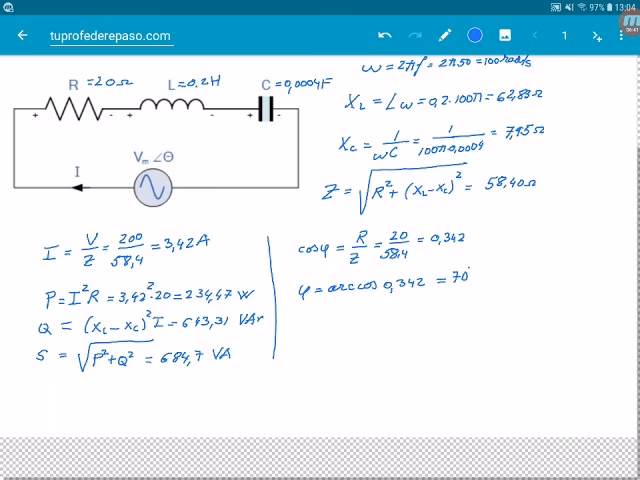 97% 13:04
06:41
tuprofederepaso.com
1
R =20Ω L=0.2H C=0,0004F
+ - + - + -
Vm ∠Θ
I
ω=2πf=2π50=100πrad/s
XL = Lω=0,2·100π=62,83Ω
XC = 1/ωC = 1/100π0,0004 = 7,95Ω
Z = √R²+(XL-XC)² = 58,40Ω
I = V/Z = 200/58,4 = 3,42A
P=I²R=3,42²·20=234,47 W
Q = (XL-XC)²I=643,31 VAr
S = √P²+Q² = 684,7 VA
cosφ = R/Z = 20/58,4 = 0,342
φ=arccos 0,342 = 70